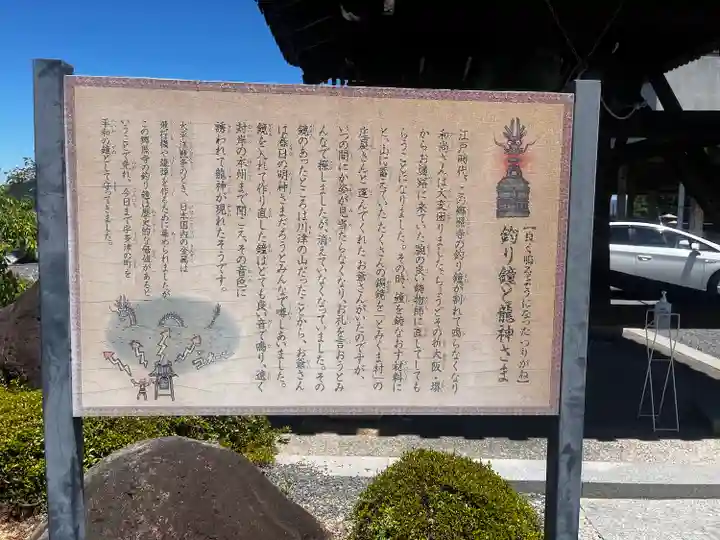 【良く鳴るようになったつりがね】
釣り鐘と龍神さま
江戸時代、この郷照寺の釣り鐘が割れて鳴らなくなり
和尚さんは大変困りました。ちょうどその折大阪、堺
からお遍路に来ていた腕の良い鋳物師に直してもらても
らうことになりました。その時、鐘を鋳なおす材料に
と、山に蓄えていたたくさんの銅鏡を「とみくま村」の
庄屋さんと運んでくれた、お爺さんがいたのですが、
いつの間にか姿が見当たらなくなり、お礼を言おうとみ
んなで探しましたが、消えていなくなっていました。その
鏡のあったところは川津の山だったことから、お爺さん
は春日の明神さまだろうとみんなで噂しあいました。
鏡を入れて作り直した鐘はとても良い音で鳴り、遠く
対岸の本州まで聞こえ、その音色に
誘われて龍神が現れたそうです。
太平洋戦争のとき、日本国内の金属は
飛行機や鉄砲を作るために集められましたが
この郷照寺の釣り鐘は歴史的な価値があると
いうことで免れ、今日まで宇多津の町を
平和の鐘として守ってきました。